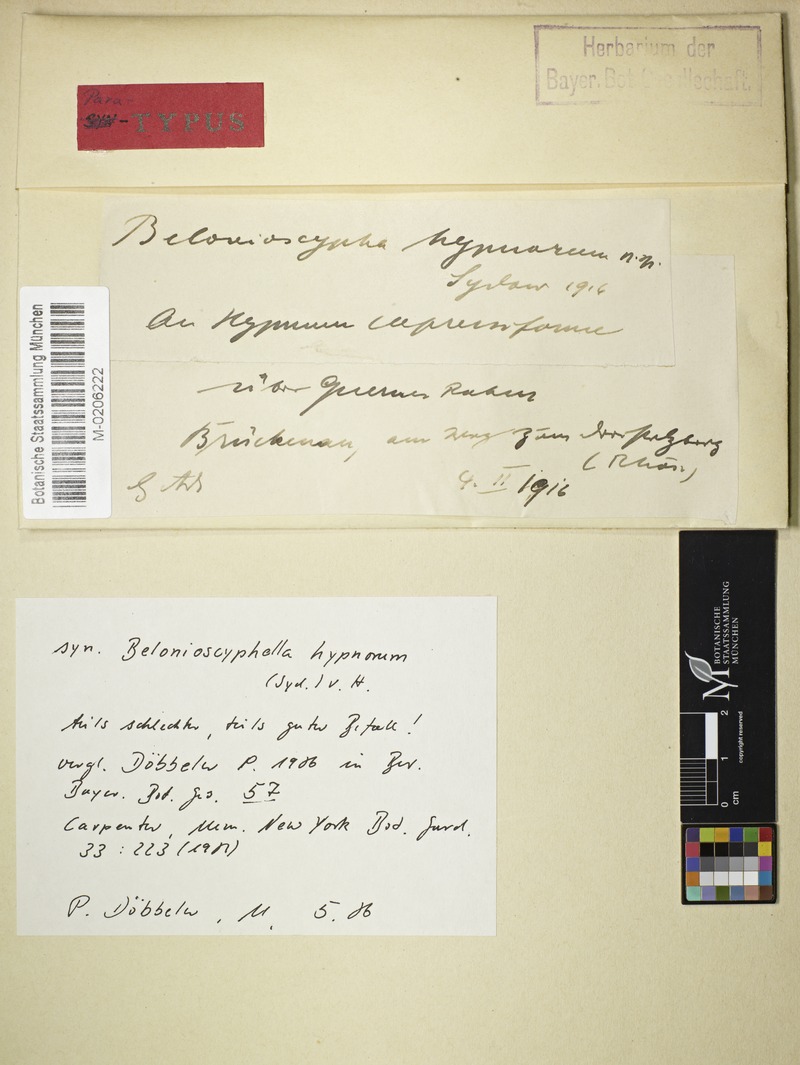 Herbarium der
Bayer. Bot. Gesellschaft.
Para-
-TYPUS
Belonioscypha hypnorum n. sp.
Sydow 1916
An Hypnum cupressiforme
über Quercus Robur
Brückenau, am Weg zum Dreistelzberg
(Rhön)
4. II 1916
Botanische Staatssammlung München
M-0206222
syn. Belonioscyphella hypnorum
(Syd.) v. H.
teils schlechter, teils guter Befall!
vergl. Döbbeler P. 1986 in Ber.
Bayer. Bot. Ges. 57
Carpenter, Mem. New York Bot. Gard.
33 : 223 (1981)
P. Döbbeler, M, 5. 86
BOTANISCHE
STAATSSAMMLUNG
MÜNCHEN
0 1 2
cm
copyright reserved